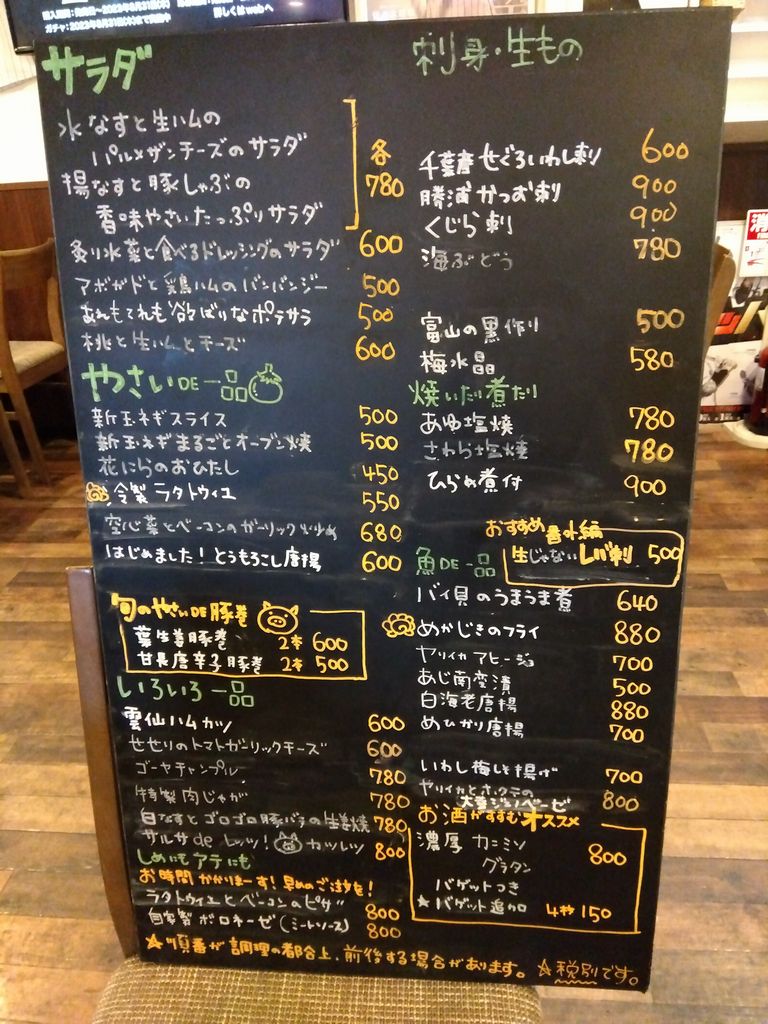 ガチャ:2023年8月31日(木)まで実施中
詳しくはwebへ
サラダ
水なすと生ハムの
パルメザンチーズのサラダ
揚なすと豚しゃぶの
香味やさいたっぷりサラダ
各
780
炙り水菜と食べるドレッシングのサラダ 600
アボガドと鶏ハムのバンバンジー 500
あれもてれも欲ばりなポテサラ 500
桃と生ハムとチーズ 600
やさいDE一品
新玉ネギスライス 500
新玉ネギまるごとオーブン焼 500
花にらのおひたし 450
冷製ラタトウィユ 550
空心菜とベーコンのガーリック炒め 680
はじめました!とうもろこし唐揚 600
旬のやさいDE豚巻
葉生姜豚巻 2本 600
甘長唐辛子豚巻 2本 500
いろいろ一品
雲仙ハムカツ 600
せせりのトマトガーリックチーズ 600
ゴーヤチャンプル 780
特製肉じゃが 780
白なすとゴロゴロ豚バラの生姜焼 780
サルサdeレッツ!カツレツ 800
しめにもアテにも
お時間かかりまーす!早めのご注文を!
ラタトウィユとベーコンのピザ 800
自家製ボロネーゼ(ミートソース) 800
刺身・生もの
千葉産せぐろいわし刺 600
勝浦かつお刺 900
くじら刺 900
海ぶどう 780
富山の黒作り 500
梅水晶 580
焼いたり煮たり
あゆ塩焼 780
さわら塩焼 780
ひらめ煮付 900
おすすめ番外編
生じゃないレバ刺 500
魚DE一品
バイ貝のうまうま煮 640
めかじきのフライ 880
ヤリイカアヒージョ 700
あじ南蛮漬 500
白海老唐揚 880
めひかり唐揚 700
いわし梅しそ揚げ 700
ヤリイカとホタテの
大葉ジェノベーゼ 800
お酒がすすむオススメ
濃厚カニミソ
グラタン 800
バゲットつき
★バゲット追加 4枚150
☆順番が調理の都合上、前後する場合があります。☆税別です。